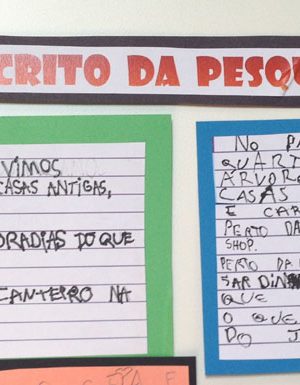 CRITO DA PESQU
VIMOS
CASAS ANTIGAS,
ORADIAS DO QUE
CANTEIRO NA
NO PA
QUART
ÁRVOR
CASAS
E CAR
PERTO DA
SHOP.
PERTO DA
SARDIN
QUE
O QUE
DO J